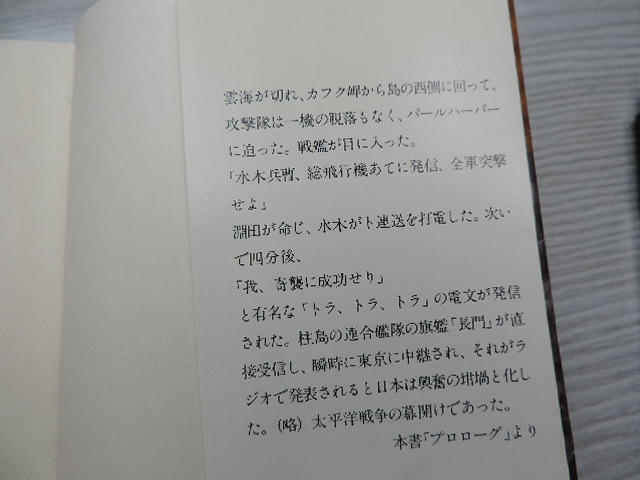 雲海が切れ、カフク岬から島の西側に回って、
攻撃隊は一機の脱落もなく、パールハーバー
に迫った。戦艦が目に入った。
「水木兵曹、総飛行機あてに発信、全軍突撃
せよ」
淵田が命じ、水木がト連送を打電した。次い
で四分後、
「我、奇襲に成功せり」
と有名な「トラ、トラ、トラ」の電文が発信
された。柱島の連合艦隊の旗艦「長門」が直
接受信し、瞬時に東京に中継され、それがラ
ジオで発表されると日本は興奮の坩堝と化し
た。（略）太平洋戦争の幕開けであった。
本書「プロローグ」より